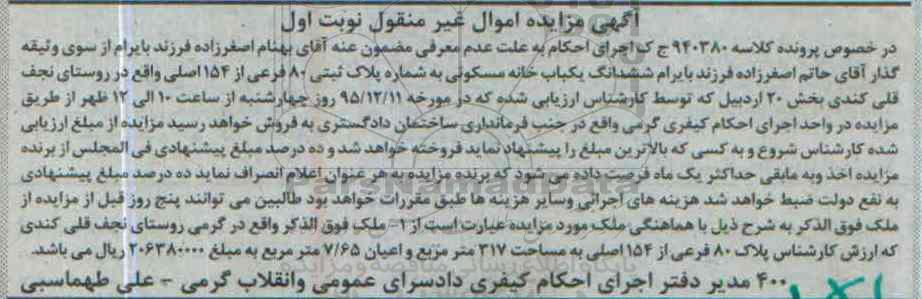 آگهی مزایده اموال غیر منقول نوبت اول
در خصوص پرونده کلاسه ۹۴۰۳۸۰ ج ک اجرای احکام به علت عدم معرفی مضمون عنه آقای بهنام اصغرزاده فرزند بایرام از سوی وثیقه
گذار آقای حاتم اصغرزاده فرزند بایرام ششدانگ یکباب خانه مسکونی به شماره پلاک ثبتی ۸۰ فرعی از ۱۵۴ اصلی واقع در روستای نجف
قلی کندی بخش ۲۰ اردبیل که توسط کارشناس ارزیابی شده که در مورخه ۹۵/۱۲/۱۱ روز چهارشنبه از ساعت ۱۰ الی ۱۲ ظهر از طریق
مزایده در واحد اجرای احکام کیفری گرمی واقع در جنب فرمانداری ساختمان دادگستری به فروش خواهد رسید مزایده از مبلغ ارزیابی
شده کارشناس شروع و به کسی که بالاترین مبلغ را پیشنهاد نماید فروخته خواهد شد و ده درصد مبلغ پیشنهادی فی المجلس از برنده
مزایده اخذ وبه مابقی حداکثر یک ماه فرصت داده می شود که برنده مزایده به هر عنوان اعلام انصراف نماید ده درصد مبلغ پیشنهادی
به نفع دولت ضبط خواهد شد هزینه های اجرائی وسایر هزینه ها طبق مقررات خواهد بود طالبین می توانند پنج روز قبل از مزایده از
ملک فوق الذکر به شرح ذیل با هماهنگی ملک مورد مزایده عبارت است از ۱- ملک فوق الذکر واقع در گرمی روستای نجف قلی کندی
که ارزش کارشناس پلاک ۸۰ فرعی از ۱۵۴ اصلی به مساحت ۳۱۷ متر مربع و اعیان ۷/۶۵ متر مربع به مبلغ ۲۰۶۳۸۰۰۰۰ ریال می باشد.
۴۰۰ مدیر دفتر اجرای احکام کیفری دادسرای عمومی وانقلاب گرمی - علی طهماسبی
ParsNamadData